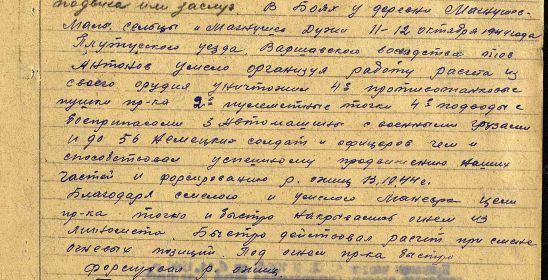 подвига или заслуг В боях у деревни Магнушев-
Малы сельцы и Магнушев Дужи 11-12 октября 1944 года
Плутуского уезда, Варшавского воеводства тов
Антонов умело организуя работу расчета из
своего орудия уничтожил 4е противотанковые
пушки пр-ка 2е пулеметные точки 4е подводы с
боеприпасами 3 автомашины с военными грузами
и до 56 немецких солдат и офицеров чем и
способствовал успешному продвижению наших
частей и форсированию р. ожиц 13.1.44 г.
Благодаря смелого и умелого маневра цели
пр-ка точно и быстро накрывались огнем из
миномета. Быстро действовал расчет при смене
огневых позиций. Под огнем пр-ка быстро
форсировал р. ожиц